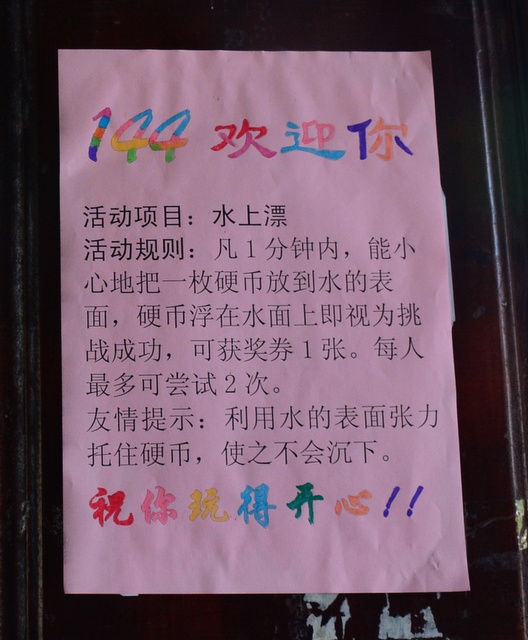 144 欢迎你
活动项目：水上漂
活动规则：凡1分钟内，能小
心地把一枚硬币放到水的表
面，硬币浮在水面上即视为挑
战成功，可获奖券1张。每人
最多可尝试2次。
友情提示：利用水的表面张力
托住硬币，使之不会沉下。
祝你玩得开心!!